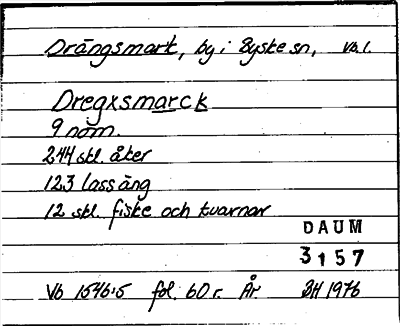 Drängsmark, by i Byske sn, Vb.l.
Dregxsmarck
9 nom.
244 skl. åker
123 lass äng
12 skl. fiske och kvarnar
DAUM
3157
Vb 1546:5 fol. 60 r. År BH 1976